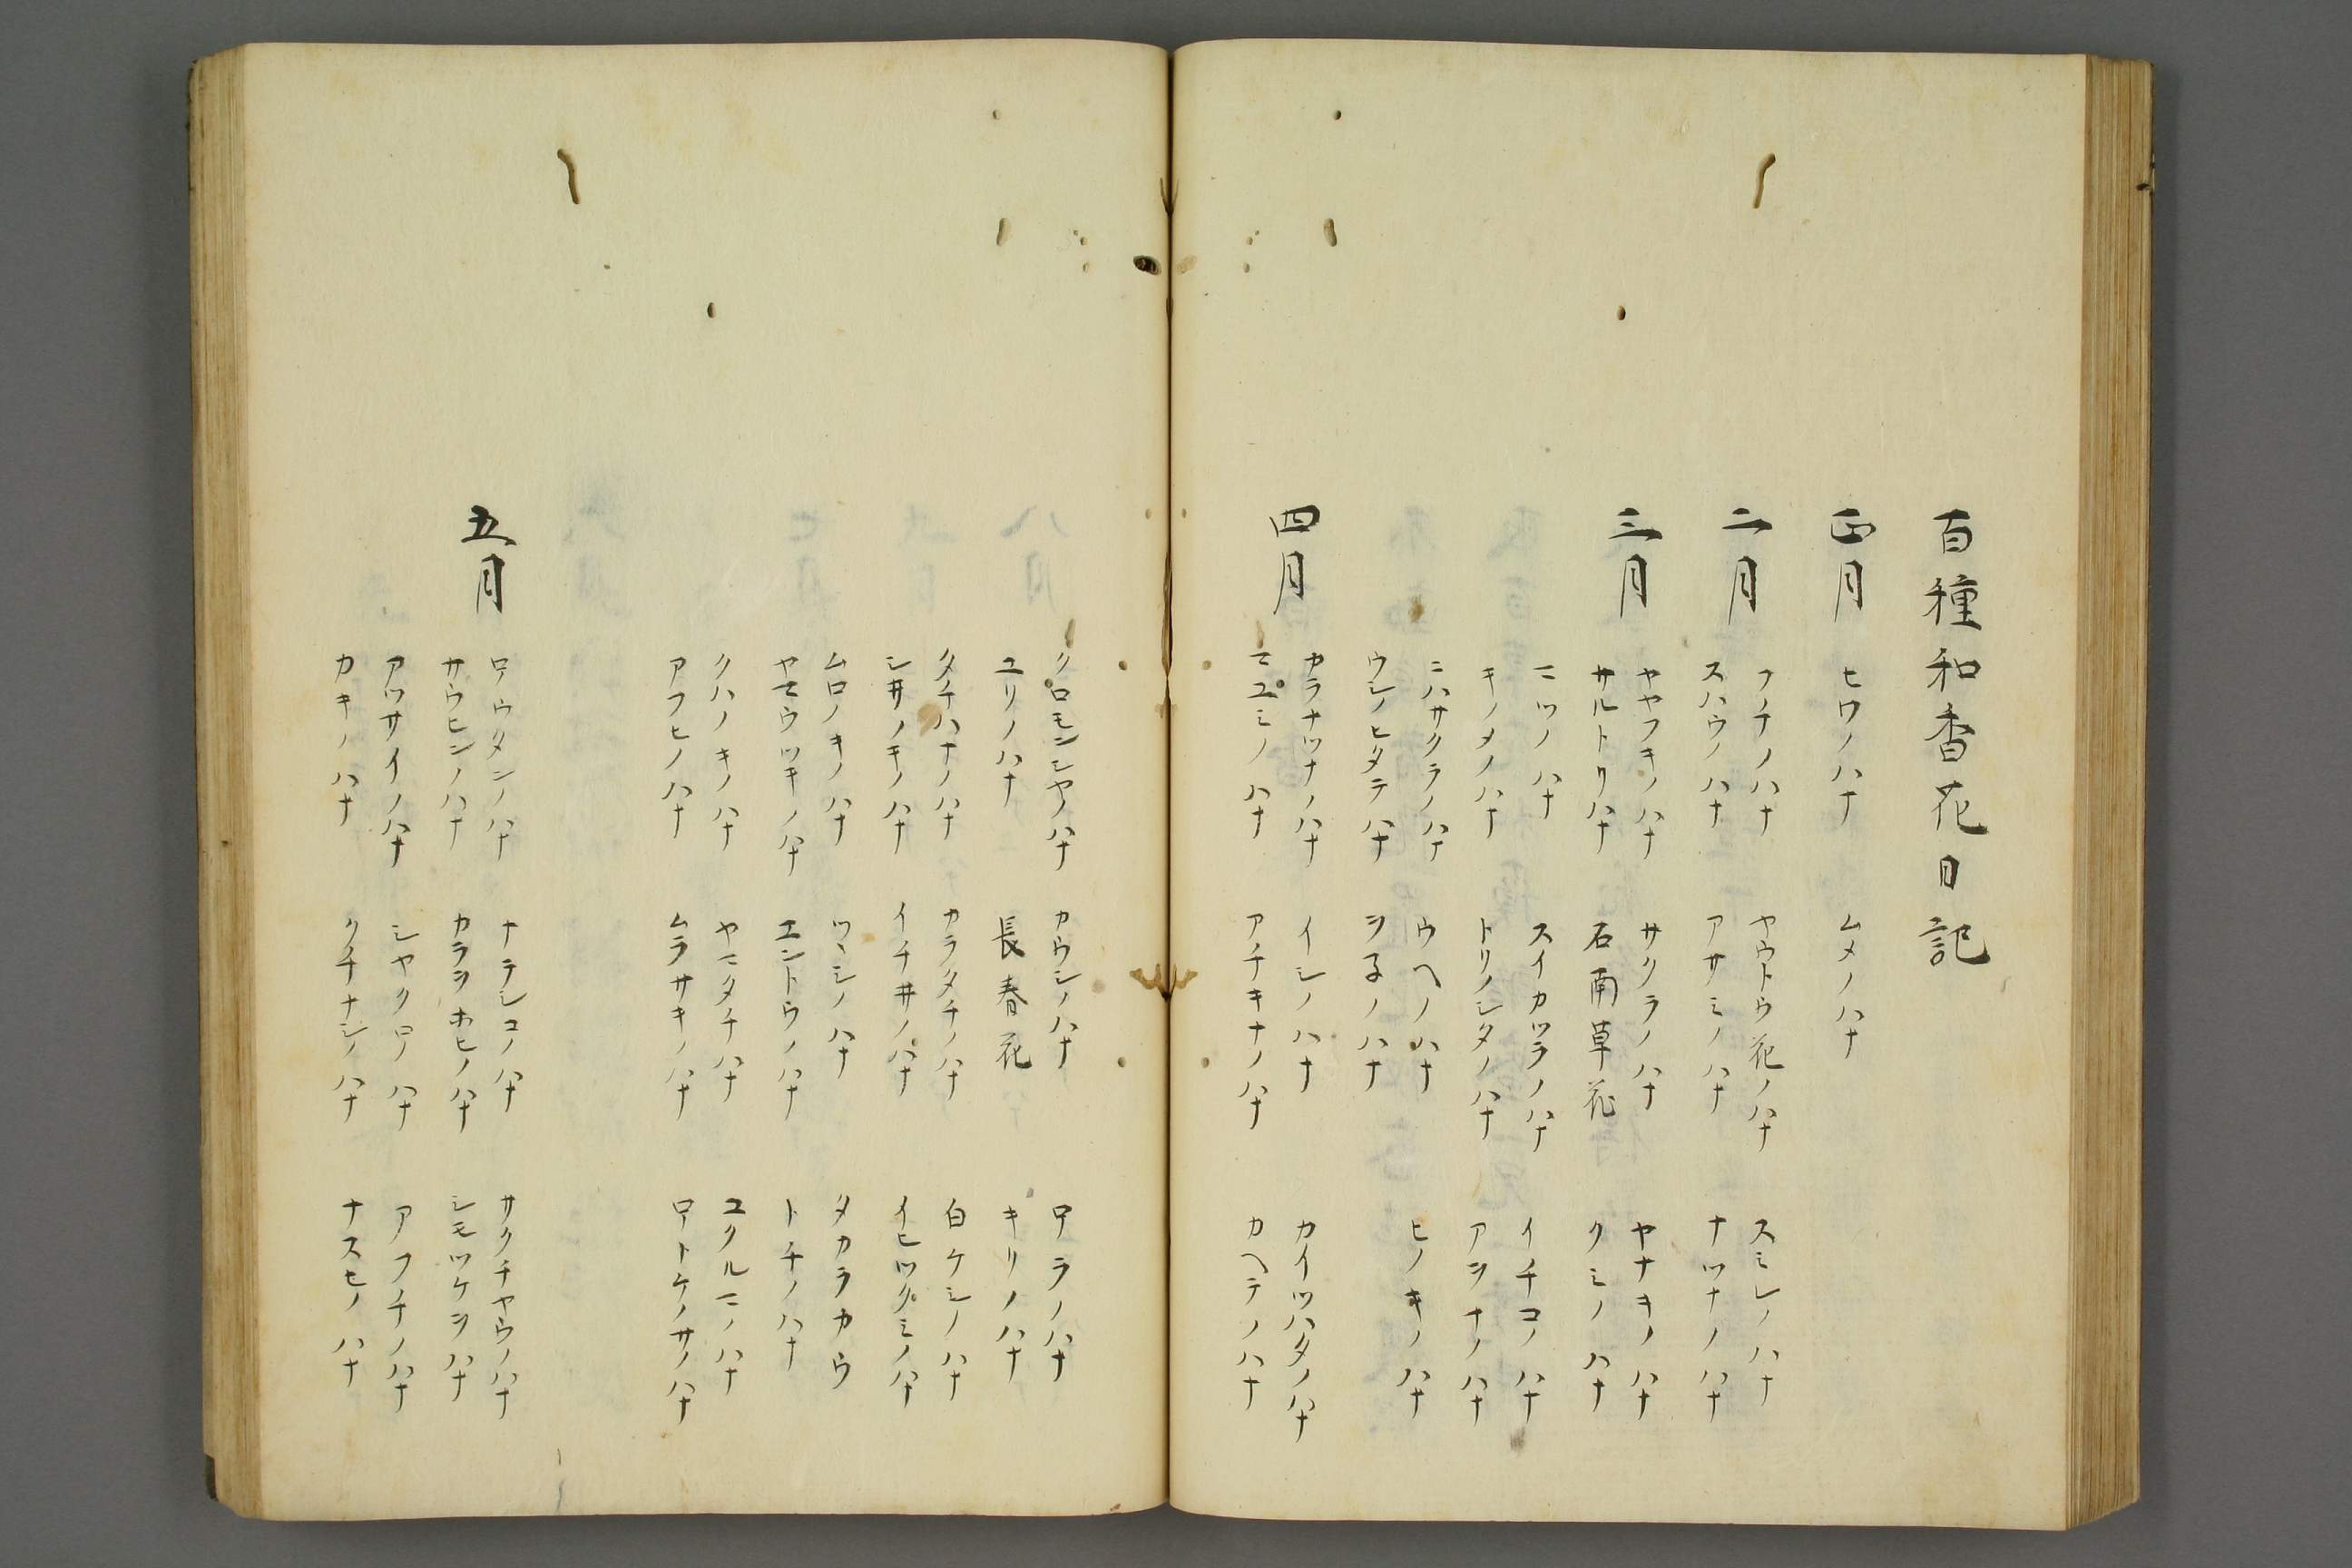 百種和香花日記
正月 ヒワノハナ ムメノハナ
フチノハナ ヤウトウ花ノハナ スミレノハナ
二月 スハウノハナ アサミノハナ ナツナノハナ
ヤヤフキノハナ サクラノハナ ヤナキノハナ
三月 サルトリハナ 石南草花 クミノハナ
ニツノハナ スイカツラノハナ イチコノハナ
キノメノハナ トリノシタノハナ アヲナノハナ
ニハサクラノハナ ウヘノハナ ヒノキノハナ
ウシノヒタテハナ
カラナツナノハナ イシノハナ カイツハタノハナ
四月 マユミノハナ アチキナノハナ カヘテノハナ
クロモンシヤノハナ カウシノハナ ワラノハナ
ユリノハナ 長春花 キリノハナ
タチハナノハナ カラタチノハナ 白ケシノハナ
シ井ノキノハナ イチ井ノハナ イヒツクミノハナ
ムロノキノハナ ツヽシノハナ タカラカウ
ヤマウツキノハナ エントウノハナ トチノハナ
クハノキノハナ ヤマタチハナ ユクルニノハナ
アフヒノハナ ムラサキノハナ ホトケノサノハナ
ホウタンノハナ ナテシコノハナ サクチヤウノハナ
五月 サウヒンノハナ カラヲホヒノハナ シモツケヲハナ
アツサイノハナ シヤクロノハナ アフチノハナ
カキノハナ クチナシノハナ ナスヒノハナ